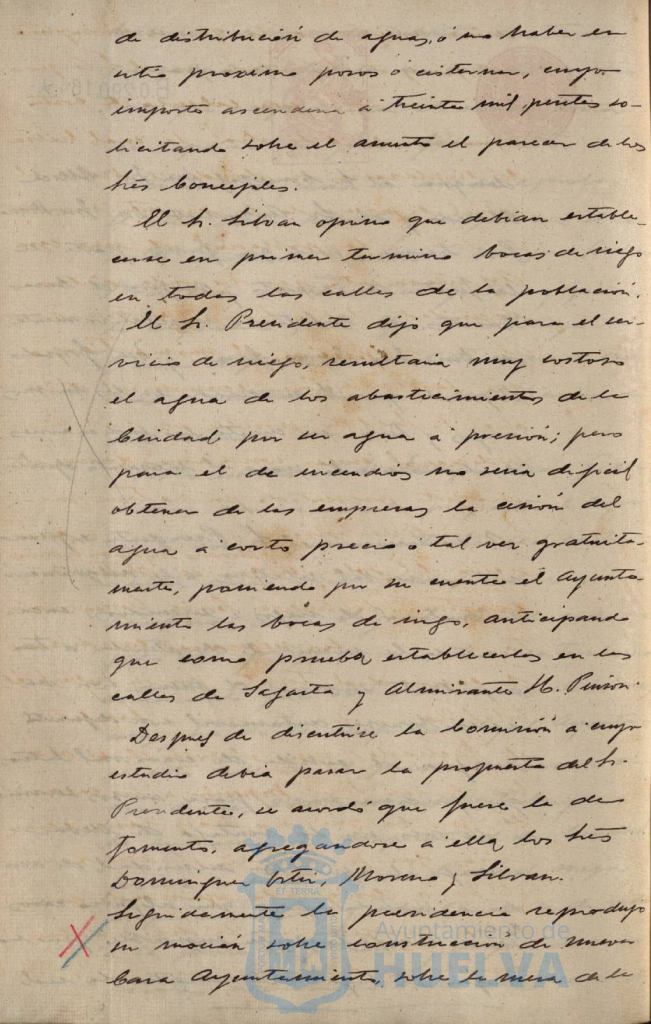 de distribución de aguas, ó no haber en
sitio proximo pozos ó cisternas, cuyo
importe ascenderia á treinta mil pesetas so-
licitando sobre el asunto el parecer de los
Srs Concejales.
El Sr. Silvan opina que debian estable-
cerse en primer termino bocas de riego
en todas las calles de la población.
El Sr. Presidente dijo que para el ser-
vicio de riego, resultaria muy costoso
el agua de los abastecimientos de la
Ciudad por ser agua á presión; pero
para el de incendios no seria dificil
obtener de las empresas la cesión del
agua á corto precio ó tal vez gratuita-
mente, poniendo por su cuenta el Ayunta-
miento las bocas de riego, anticipando
que como prueba establecerlas en las
calles de Sagasta y Almirante H. Pinzon.
Despues de discutirse la Comisión á cuyo
estudio debia pasar la propuesta del Sr.
Presidente, se acordó que fuese la de
fomento, agregandose á ella los Srs
Dominguez, Moreno y Silvan.
Seguidamente la presidencia reprodujo
su moción sobre construccion de nueva
Casa Ayuntamiento, sobre la mesa de la
ET TERRA
Ayuntamiento de
HUELVA